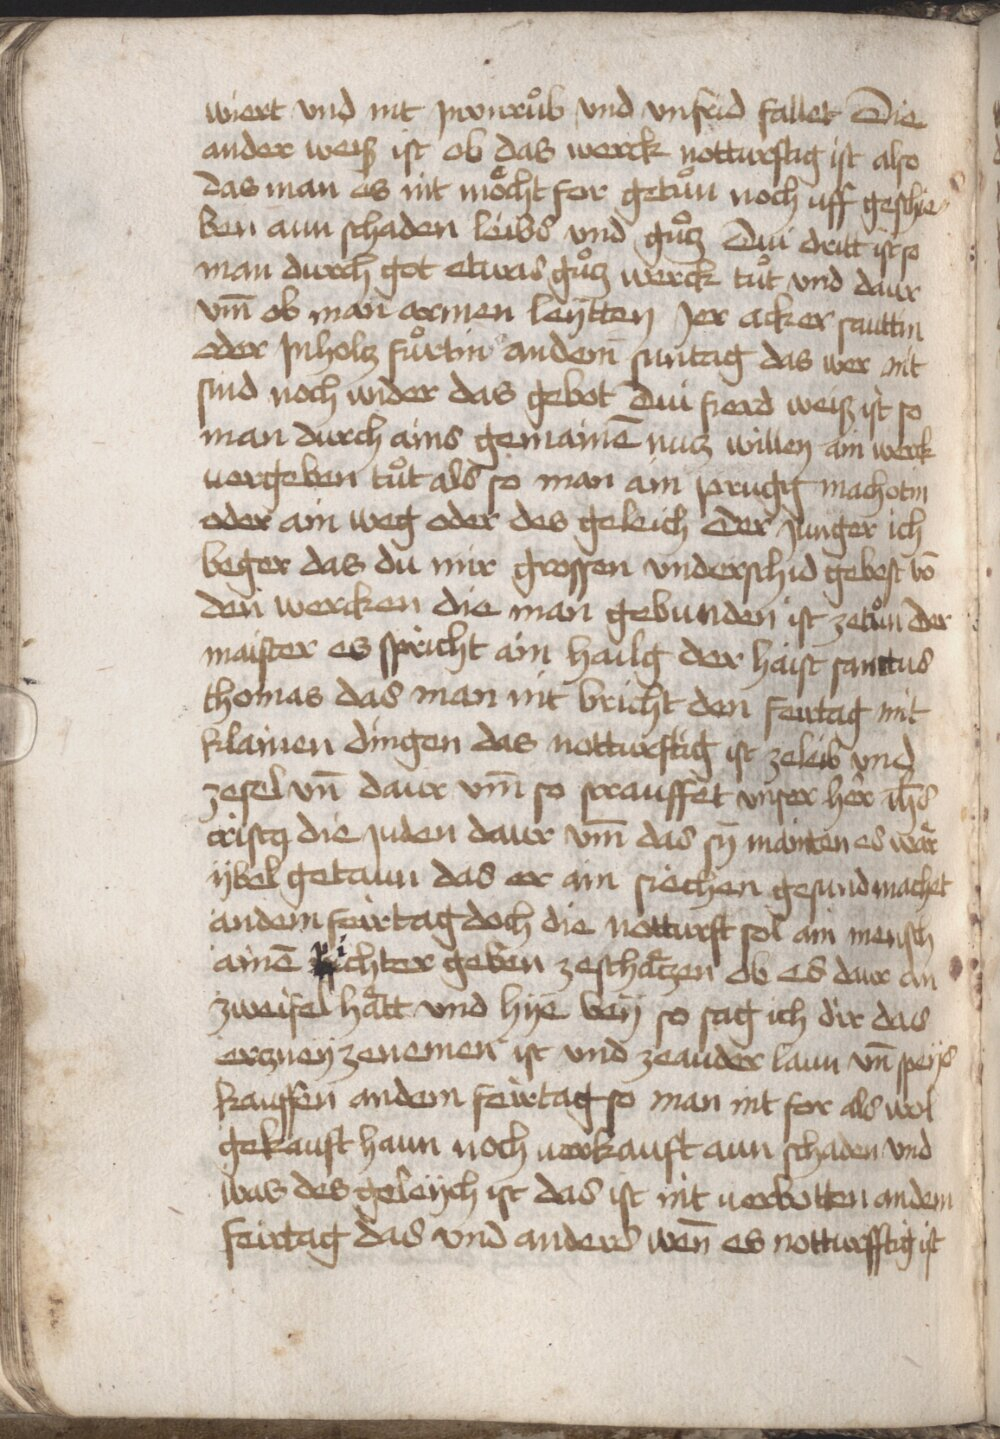 wiert vnd nit jn vnrůb vnd vnfrid fallet Die
ander weiß ist ob das werck notturftig ist also
das man es nit möcht for getůn noch uff geschie
ben aun schaden leibs vnd gůtz Dui dritt ist so
man durch got etwas gůtz werck tůt vnd daur
vm̄ ob man armen leÿtten jer acker sauttin
oder jnholtz fůrtin andem suntag das wer nit
sind noch wider das gebot Dui fierd weiß ist so
man durch ains gemainē nutz willen ain werck
uergeben tůt als so man ain prugg machotin
oder ain weg oder des geleich Der Junger ich
beger das du mir grossen vnderschid gebest vō
den wercken die man gebunden ist zetůn Der
maister es spricht ain hailg der haist sanctus
thomas das man nit bricht den feirtag mit
klainen dingen das notturftig ist zeleib vnd
zesel vn̄ daur vm̄ so strauffet vnser her ih̄s
cristq die juden daur vm̄ das sÿ mainten es wär
ÿbel getaun das er ain siechen gesund machet
andem feirtag doch die notturft sol ain mensch
ainē Richter geben zeschätzen ob es daur an
zweifel hätt vnd hÿe beÿ so sag ich dir das
ertzneÿ zenemen ist vnd zeauder laun vn̄ speÿs
kauffen andem feirtag so man nit for als wol
gekauft haun noch uerkauft aun schaden vnd
was des geleÿch ist das ist nit uerbotten andem
feirtag das vnd anders wen̄ es notturfftig ist